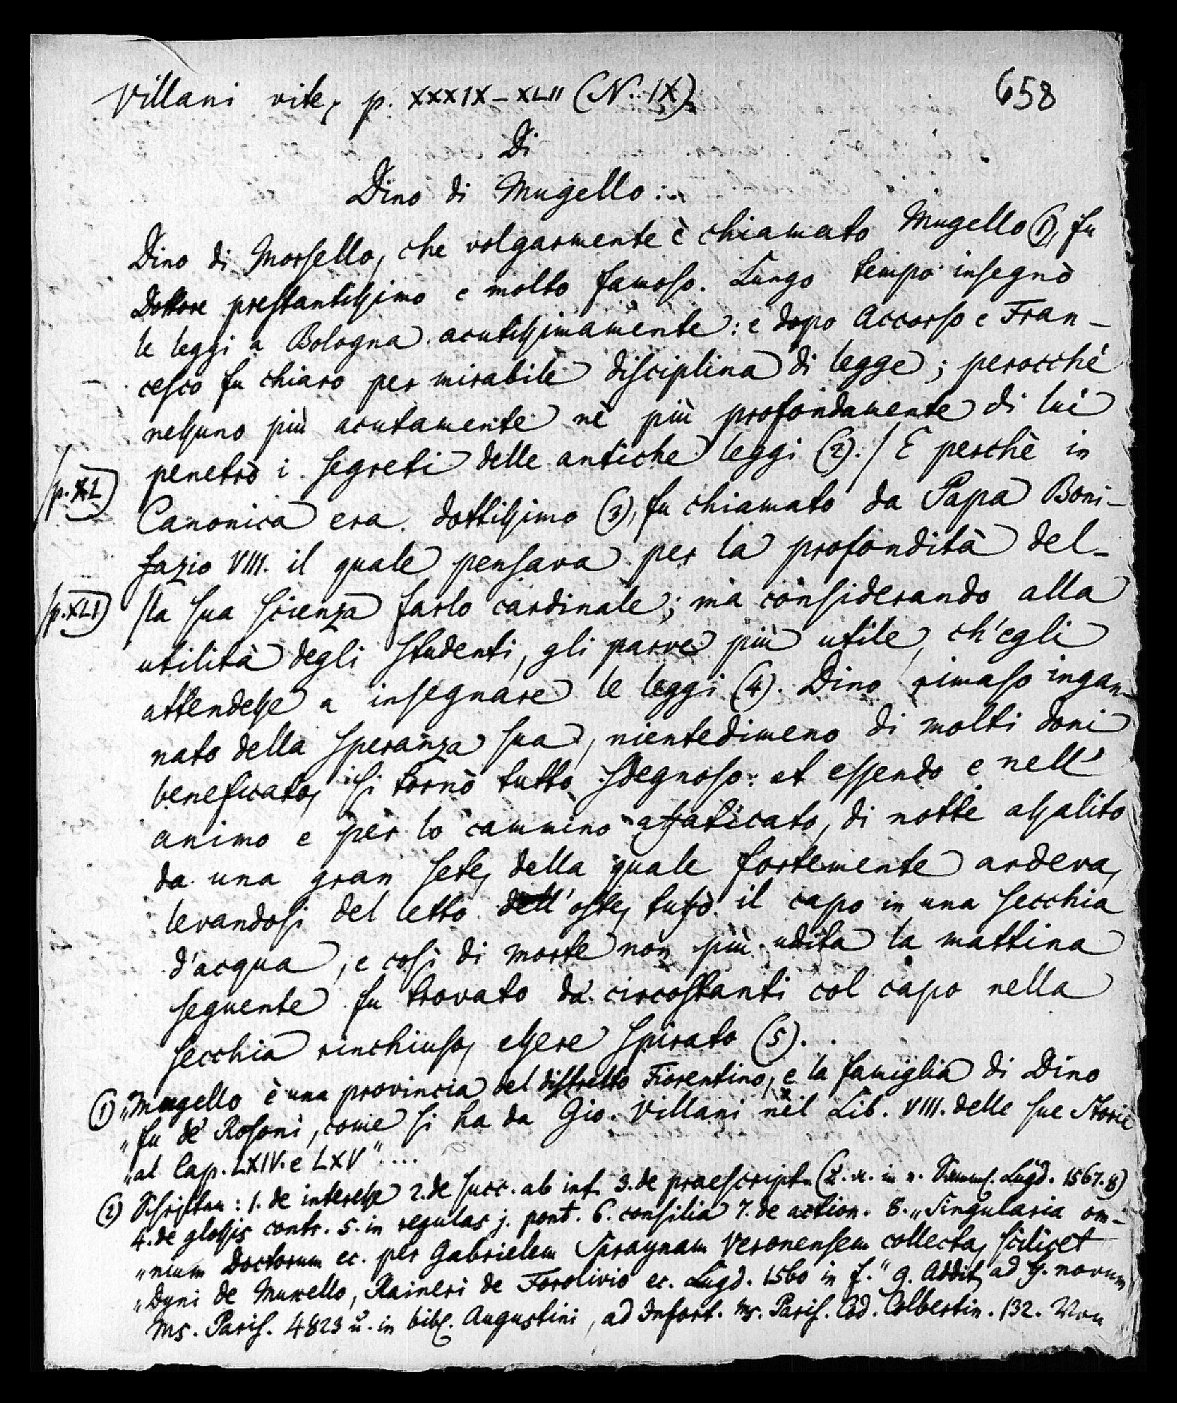 Villani vite, p. XXXIX-XLII (N. IX). 658
Di
Dino di Mugello:
Dino di Morsello, che volgarmente è chiamato Mugello (1), fu
Dottore prestantissimo e molto famoso. Lungo tempo insegnò
le leggi a Bologna acutissimamente: e dopo Accorso e Fran-
cesco fu chiaro per mirabile disciplina di legge; perocchè
nessuno più acutamente nè più profondamente di lui
penetrò i segreti delle antiche leggi (2). / E perchè in
/p. XL)
Canonica era dottissimo (3), fu chiamato da Papa Boni-
fazio VIII. il quale pensava per la profondità del-
/p. XLI)
/la sua scienza farlo cardinale; ma considerando alla
utilità degli studenti, gli parve più utile, ch'egli
attendesse a insegnare le leggi (4). Dino rimaso ingan-
nato della speranza sua, nientedimeno di molti doni
beneficato, si tornò tutto sdegnoso: et essendo e nell'
animo e per lo cammino affaticato, di notte assalito
da una gran sete, della quale fortemente ardeva,
levandosi del letto dell'oste, tufò il capo in una secchia
d'acqua, e così di morte non più udita la mattina
seguente fu trovato da circostanti col capo nella
secchia rinchiuso, essere spirato (5).
(1) „Mugello è una provincia del distretto Fiorentino, e la famiglia di Dino
„fu de' Rosoni, come si ha da Gio. Villani nel Lib. VIII. delle sue Storie
„al Cap. LXIV. e LXV" ....
(2) Schriften: 1. de interesse 2. de succ. ab int. 3. de praescript. (Z. a. in Lugd. 1567. 8)
4. de glossis contr. 5. in regulas j. pont. 6. consilia 7. de action. 8. „Singularia om-
„nium Doctorum ec. per Gabrielem Saraynam Veronensem collecta, scilicet
„Dyni de Muxello, Raineri de Forolivio ec. Lugd. 1560 in f." 9. Addit. ad ff. novum
Ms. Paris. 4823 u. in bibl. Augustini, ad Infort. Ms. Paris. Cod. Colbertin. 132. Von